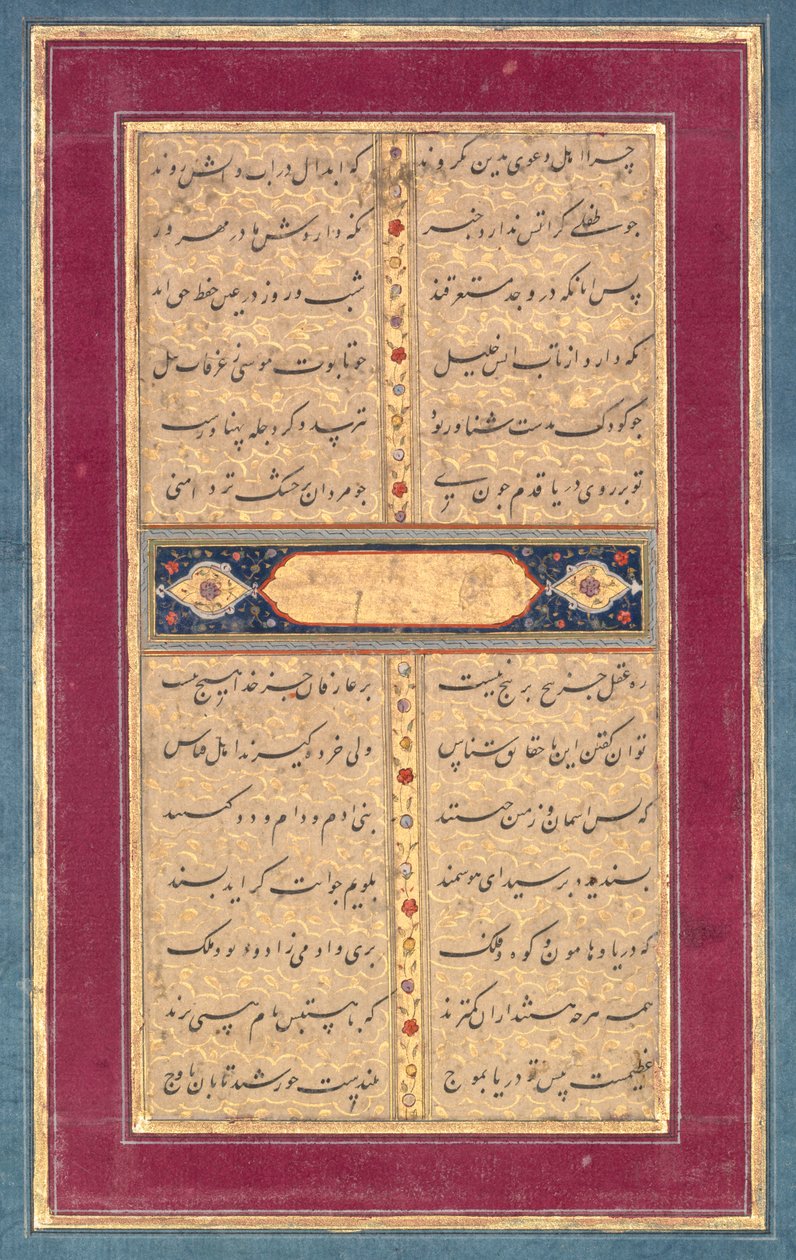 چرا اهل دعوی بدین نکروند که ابدال در اب و اتش روند
جو طفلی کز اتش ندارد خبر نکه داردش مادر مهرور
پس انانکه در وجد مستغرقند شب و روز در عین حفظ حق اند
نکه دارد از تاب اتش خلیل جو تابوت موسی ز غرقاب نیل
جو کودک بدست شناور بود نترسد وکر دجله پهناورست
تو بر روی دریا قدم جون زنی جو مردان بر خشک تر دامنی
ره عقل جز پیچ بر پیچ نیست بر عارفان جز خدا هیچ نیست
توان کفتن این با حقایق شناس ولی خرده کیرند اهل قیاس
که پس اسمان و زمین چیستند بنی ادم و دام و دد کیستند
پسندیده پرسیدی ای هوشمند بکویم جوابت کر اید پسند
که دریا و هامون و کوه و فلک پری و ادمی زاد و دیو و ملک
همه هرچه هستند ازان کمترند که با هستیش نام هستی برند
عظیمست پیش تو دریا بموج بلندست خورشید تابان باوج